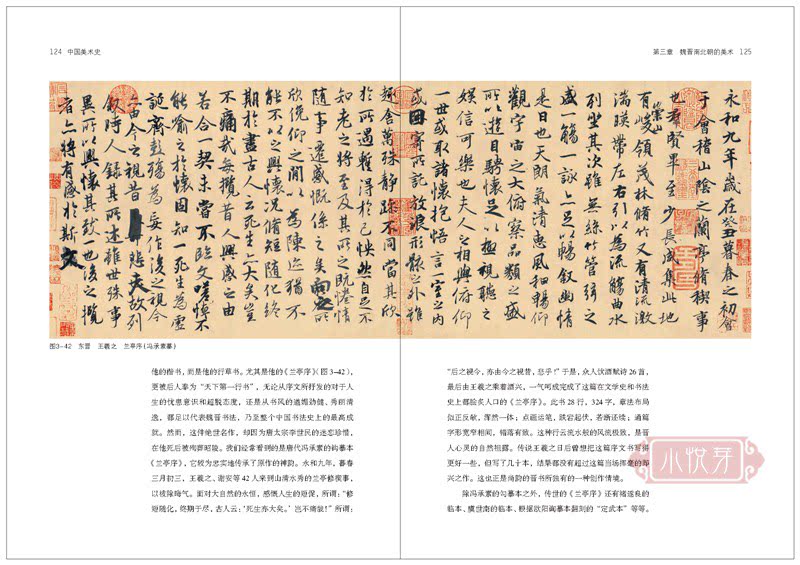 124 中国美术史
第三章 魏晋南北朝的美术 125
永和九年歲在癸丑暮春之初會
于會稽山陰之蘭亭脩稧事
也群賢畢至少長咸集此地
有崇山峻領茂林脩竹又有清流激
湍暎帶左右引以為流觴曲水
列坐其次雖無絲竹管弦之
盛一觴一詠亦足以暢敘幽情
是日也天朗氣清惠風和暢仰
觀宇宙之大俯察品類之盛
所以遊目騁懷足以極視聽之
娛信可樂也夫人之相與俯仰
一世或取諸懷抱悟言一室之內
或因寄所託放浪形骸之外雖
趣舍萬殊靜躁不同當其欣
於所遇蹔得於己怏然自足不
知老之將至及其所之既惓情
隨事遷感慨係之矣向之所
欣俛仰之閒以為陳迹猶不
能不以之興懷況脩短隨化終
期於盡古人云死生亦大矣豈
不痛哉每攬昔人興感之由
若合一契未嘗不臨文嗟悼不
能喻之於懷固知一死生為虛
誕齊彭殤為妄作後之視今
亦由今之視昔悲夫故列
敘時人錄其所述雖世殊事
異所以興懷其致一也後之攬
者亦將有感於斯文
图3-42 东晋 王羲之 兰亭序（冯承素摹）
他的楷书，而是他的行草书。尤其是他的《兰亭序》（图3-42），
更被后人奉为“天下第一行书”，无论从序文所抒发的对于人
生的忧患意识和超脱态度，还是从书风的遒媚劲健、秀朗清
逸，都足以代表魏晋书法，乃至整个中国书法史上的最高成
就。然而，这件绝世名作，却因为唐太宗李世民的迷恋珍惜，
在他死后被殉葬昭陵。我们经常看到的是唐代冯承素的钩摹本
《兰亭序》，它较为忠实地传承了原作的神韵。永和九年，暮春
三月初三，王羲之、谢安等42人来到山清水秀的兰亭修禊事，
以祓除晦气。面对大自然的永恒，感慨人生的短促，所谓：“修
短随化，终期于尽，古人云：‘死生亦大矣。’岂不痛哉！”所谓：
“后之视今，亦由今之视昔，悲乎！”于是，众人饮酒赋诗26首，
最后由王羲之乘着酒兴，一气呵成完成了这篇在文学史和书法
史上都脍炙人口的《兰亭序》。此书28行，324字，章法布局
似正反敧，浑然一体；点画运笔，跌宕起伏，若断还续；通篇
字形宽窄相间，错落有致。这种行云流水般的风流极致，是晋
人心灵的自然袒露。传说王羲之日后曾想把这篇序文书写得
更好一些，但写了几十本，结果都没有超过这篇当场挥毫的即
兴之作。这也正是尚韵的晋书所独有的一种创作情境。
除冯承素的勾摹本之外，传世的《兰亭序》还有褚遂良的
临本、虞世南的临本、根据欧阳询摹本翻刻的“定武本”等等。
小悦芽